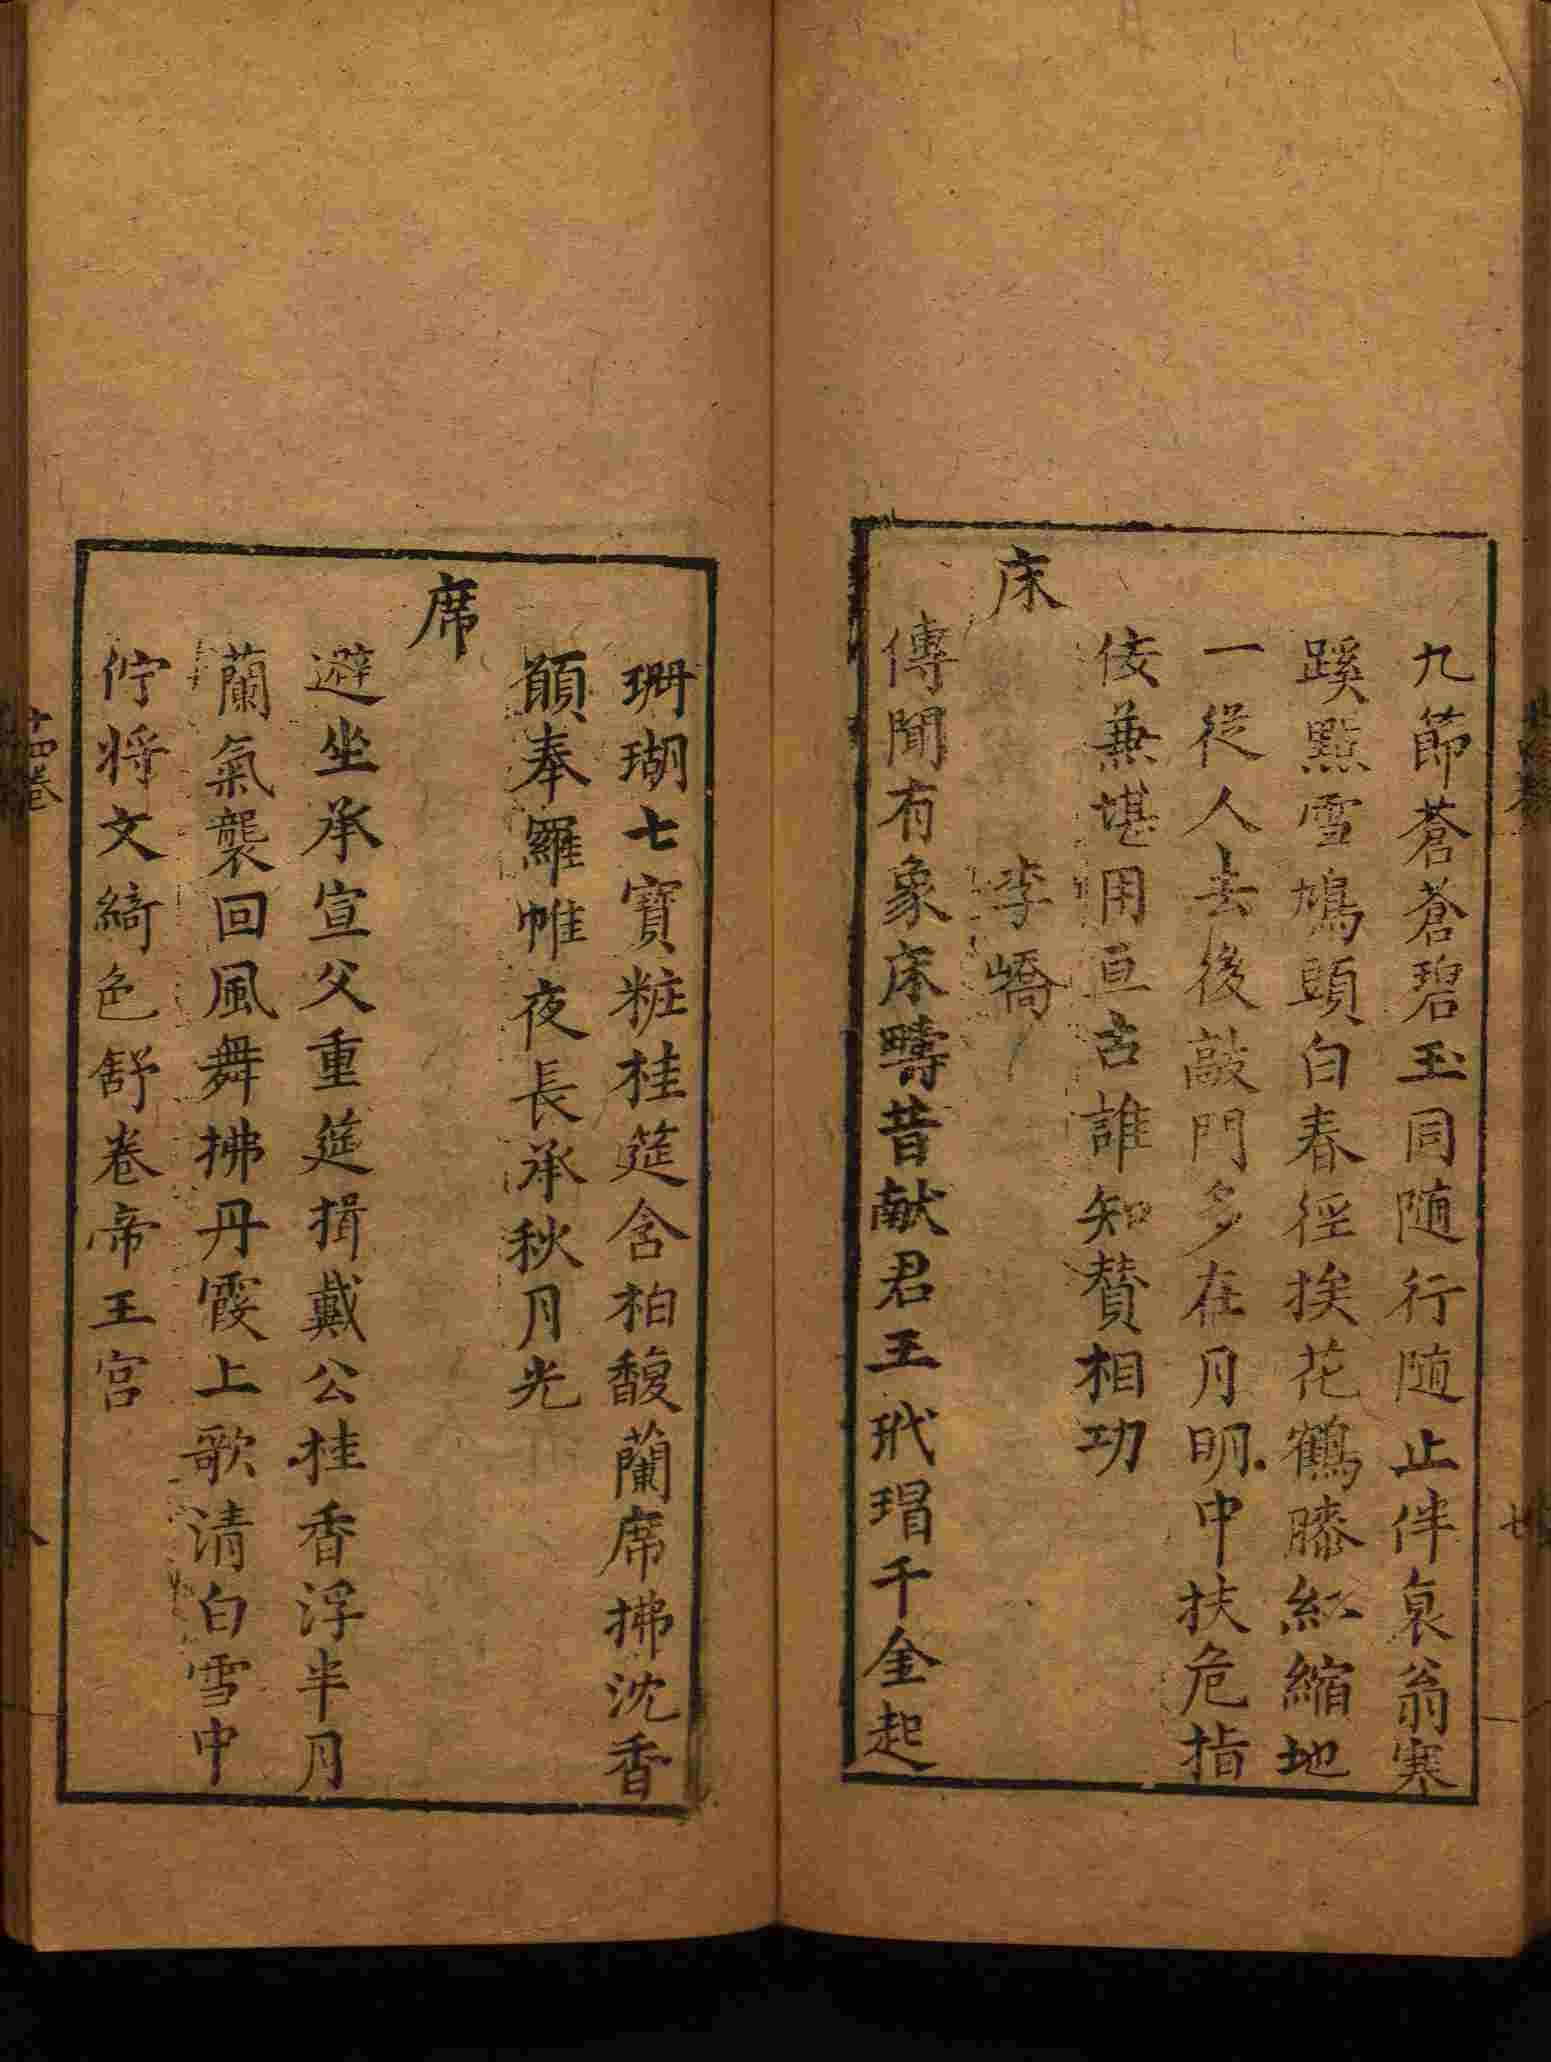 九節蒼蒼碧玉同随行随止伴衰翁寒
蹊點雪鳩頭白春徑挨花鶴膝紅縮地
一從人去後敲門多在月明中扶危指
佞兼堪用亘古誰知賛相功
床
李嶠
傳聞有象床疇昔献君王玳瑁千金起
珊瑚七寳粧桂筵含柏馥蘭席拂沈香
願奉羅帷夜長承秋月光
席
避坐承宣父重筵揖戴公桂香浮半月
蘭氣襲回風舞拂丹霞上歌清白雪中
佇将文綺色舒卷帝王宫
十四卷
八
七